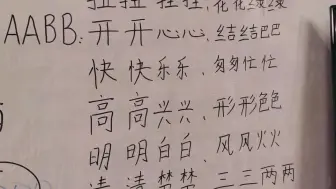 花花绿绿
AABB:开开心心,结结巴巴
快快乐乐、匆匆忙忙
高高兴兴、形形色色
明明白白、风风火火
清清楚楚、三三两两